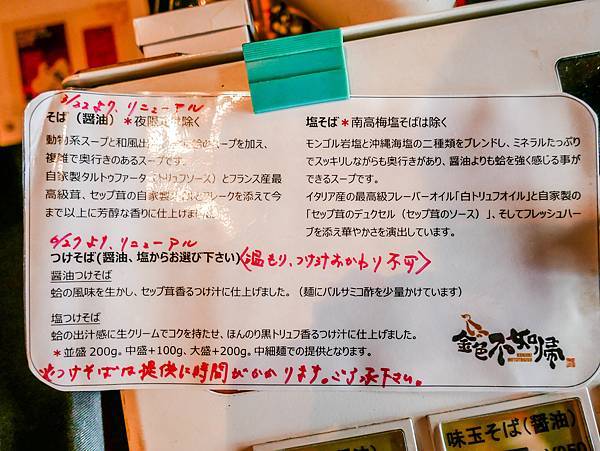 3/22より、リニューアル
そば（醤油）＊夜限定は除く
動物系スープと和風出汁、蛤のスープを加え、
複雑で奥行きのあるスープです。
自家製タルトゥファータ（トリュフソース）とフランス産最
高級茸、セップ茸の自家製オイルとフレークを添えて今
まで以上に芳醇な香りに仕上げました。
塩そば＊南高梅塩そばは除く
モンゴル岩塩と沖縄海塩の二種類をブレンドし、ミネラルたっぷり
でスッキリしながらも奥行きがあり、醤油よりも蛤を強く感じる事が
できるスープです。
イタリア産の最高級フレーバーオイル「白トリュフオイル」と自家製の
「セップ茸のデュクセル（セップ茸のソース）」、そしてフレッシュハー
ブを添え華やかさを演出しています。
6/27より、リニューアル
つけそば（醤油、塩からお選び下さい）〈温もり、つけ汁おかわり不可〉
醤油つけそば
蛤の風味を生かし、セップ茸香るつけ汁に仕上げました。（麺にバルサミコ酢を少量かけています）
塩つけそば
蛤の出汁感に生クリームでコクを持たせ、ほんのり黒トリュフ香るつけ汁に仕上げました。
＊並盛 200g。中盛+100g、大盛+200g。中細麺での提供となります。
※つけそばは提供に時間がかかります。ご了承下さい。
金色不如帰
味玉そば（醤油）